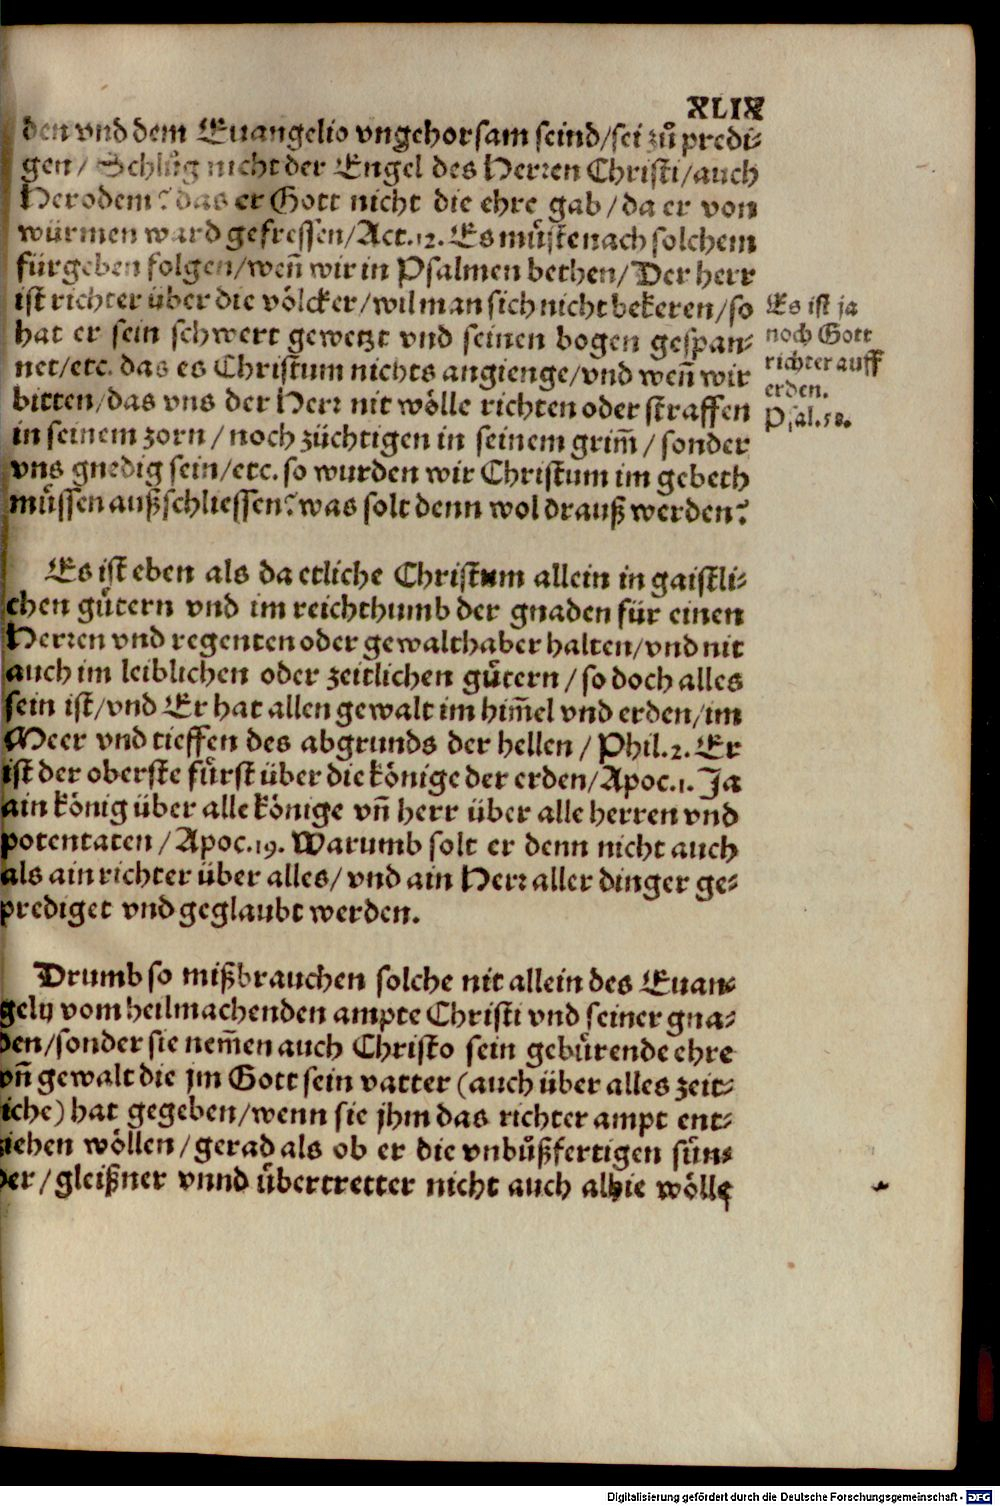 XLIX
den vnd dem Euangelio vngehorsam seind/sei zů predi-
gen/ Schlůg nicht der Engel des Herren Christi/auch
Herodem? das er Gott nicht die ehre gab/da er von
würmen ward gefressen/Act.12. Es müste nach solchem
fürgeben folgen/weñ wir in Psalmen bethen/Der herr
ist richter über die völcker/wil man sich nicht bekeren/so
hat er sein schwert gewetzt vnd seinen bogen gespan-
net/etc. das es Christum nichts angienge/vnd weñ wir
bitten/das vns der Herr nit wölle richten oder straffen
in seinem zorn/noch züchtigen in seinem grim̃/sonder
vns gnedig sein/etc. so wurden wir Christum im gebeth
müssen außschliessen? was solt denn wol drauß werden?
Es ist ja
noch Gott
richter auff
erden.
Psal.58.
Es ist eben als da etliche Christum allein in gaistli-
chen gůtern vnd im reichthumb der gnaden für einen
Herren vnd regenten oder gewalthaber halten/vnd nit
auch im leiblichen oder zeitlichen gůtern/so doch alles
sein ist/vnd Er hat allen gewalt im him̃el vnd erden/im
Meer vnd tieffen des abgrunds der hellen/Phil.2. Er
ist der oberste fürst über die könige der erden/Apoc.1. Ja
ain könig über alle könige vñ herr über alle herren vnd
potentaten/Apoc.19. Warumb solt er denn nicht auch
als ain richter über alles/vnd ain Herr aller dinger ge-
prediget vnd geglaubt werden.
Drumb so mißbrauchen solche nit allein des Euan-
gelij vom heilmachenden ampte Christi vnd seiner gna-
den/sonder sie nem̃en auch Christo sein gebürende ehre
vñ gewalt die jm Gott sein vatter (auch über alles zeit-
liche) hat gegeben/wenn sie jhm das richter ampt ent-
ziehen wöllen/gerad als ob er die vnbůßfertigen sün-
der/gleißner vnnd übertretter nicht auch alhie wölle
Digitalisierung gefördert durch die Deutsche Forschungsgemeinschaft - DFG